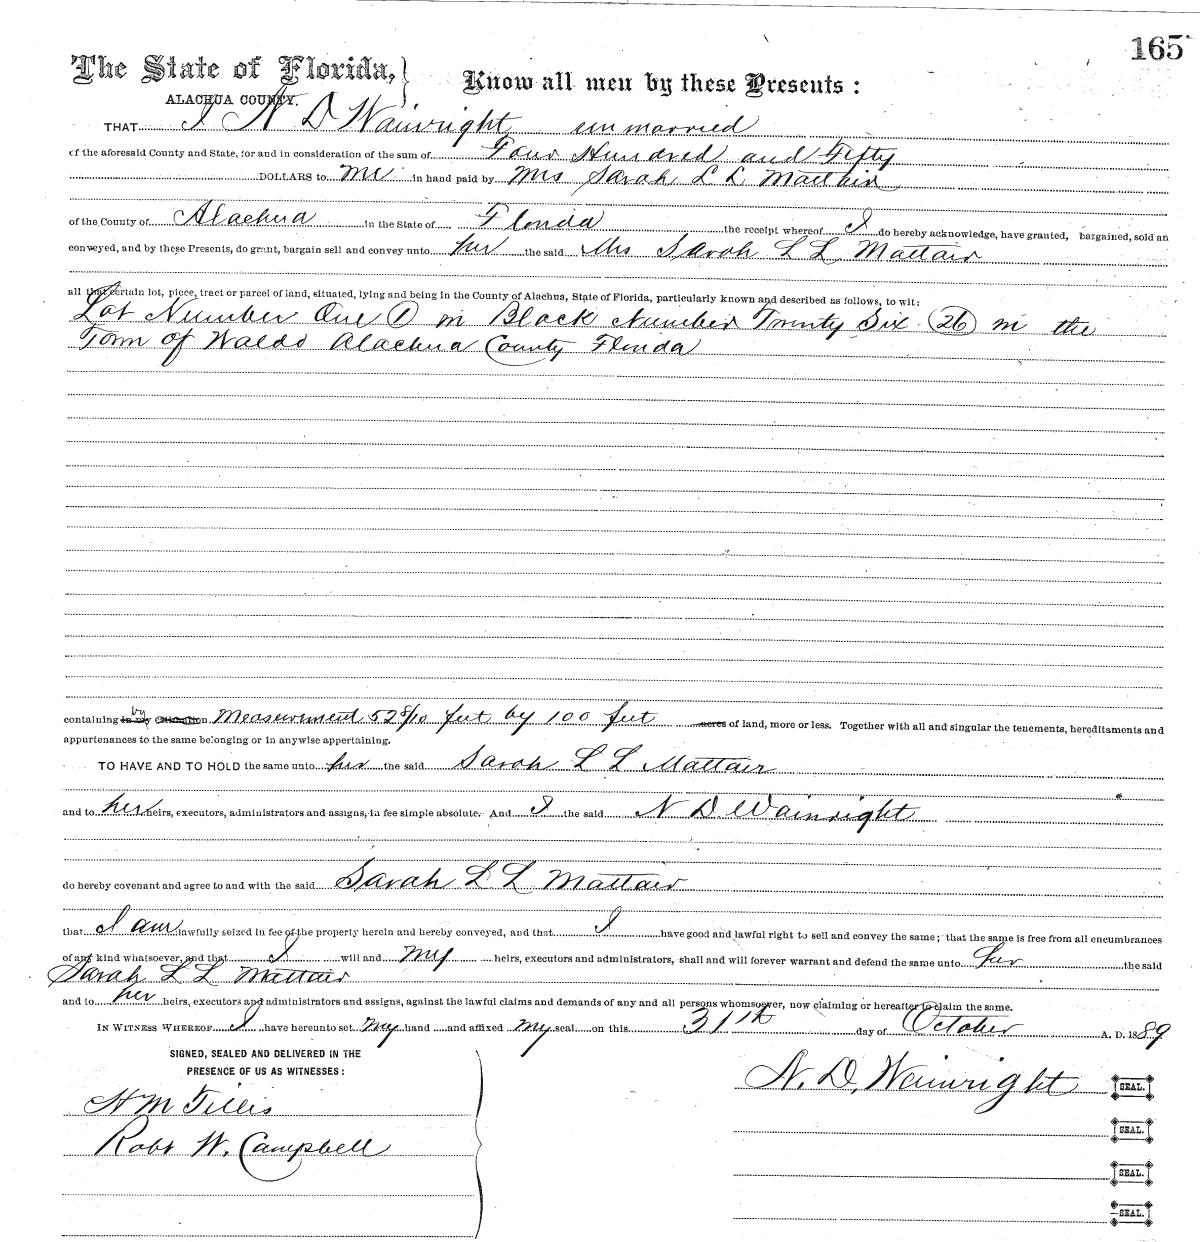 165
The State of Florida,
ALACHUA COUNTY.
Know all men by these Presents:
THAT I N D Wainright unmarried
of the aforesaid County and State, for and in consideration of the sum of Four Hundred and Fifty
DOLLARS to me in hand paid by Mrs Sarah L L Mattair
of the County of Alachua in the State of Florida the receipt whereof I do hereby acknowledge, have granted, bargained, sold an
conveyed, and by these Presents, do grant, bargain sell and convey unto her the said Mrs Sarah L L Mattair
all that certain lot, piece, tract or parcel of land, situated, lying and being in the County of Alachua, State of Florida, particularly known and described as follows, to wit:
Lot Number One (1) in Block Number Twenty Six (26) in the
Town of Waldo Alachua County Florida
containing by Measurement 52 8/10 feet by 100 feet acres of land, more or less. Together with all and singular the tenements, hereditaments and
appurtenances to the same belonging or in anywise appertaining.
TO HAVE AND TO HOLD the same unto her the said Sarah L L Mattair
and to her heirs, executors, administrators and assigns, in fee simple absolute. And I the said N D Wainright
do hereby covenant and agree to and with the said Sarah L L Mattair
that I am lawfully seized in fee of the property herein and hereby conveyed, and that I have good and lawful right to sell and convey the same; that the same is free from all encumbrances
of any kind whatsoever, and that I will and my heirs, executors and administrators, shall and will forever warrant and defend the same unto her the said
Sarah L L Mattair
and to her heirs, executors and administrators and assigns, against the lawful claims and demands of any and all persons whomsoever, now claiming or hereafter to claim the same.
IN WITNESS WHEREOF I have hereunto set my hand and affixed my seal on this 31st day of October A. D. 1889
SIGNED, SEALED AND DELIVERED IN THE
PRESENCE OF US AS WITNESSES:
N. D. Wainright SEAL.
H M Tillis
SEAL.
Robt W. Campbell
SEAL.
SEAL.